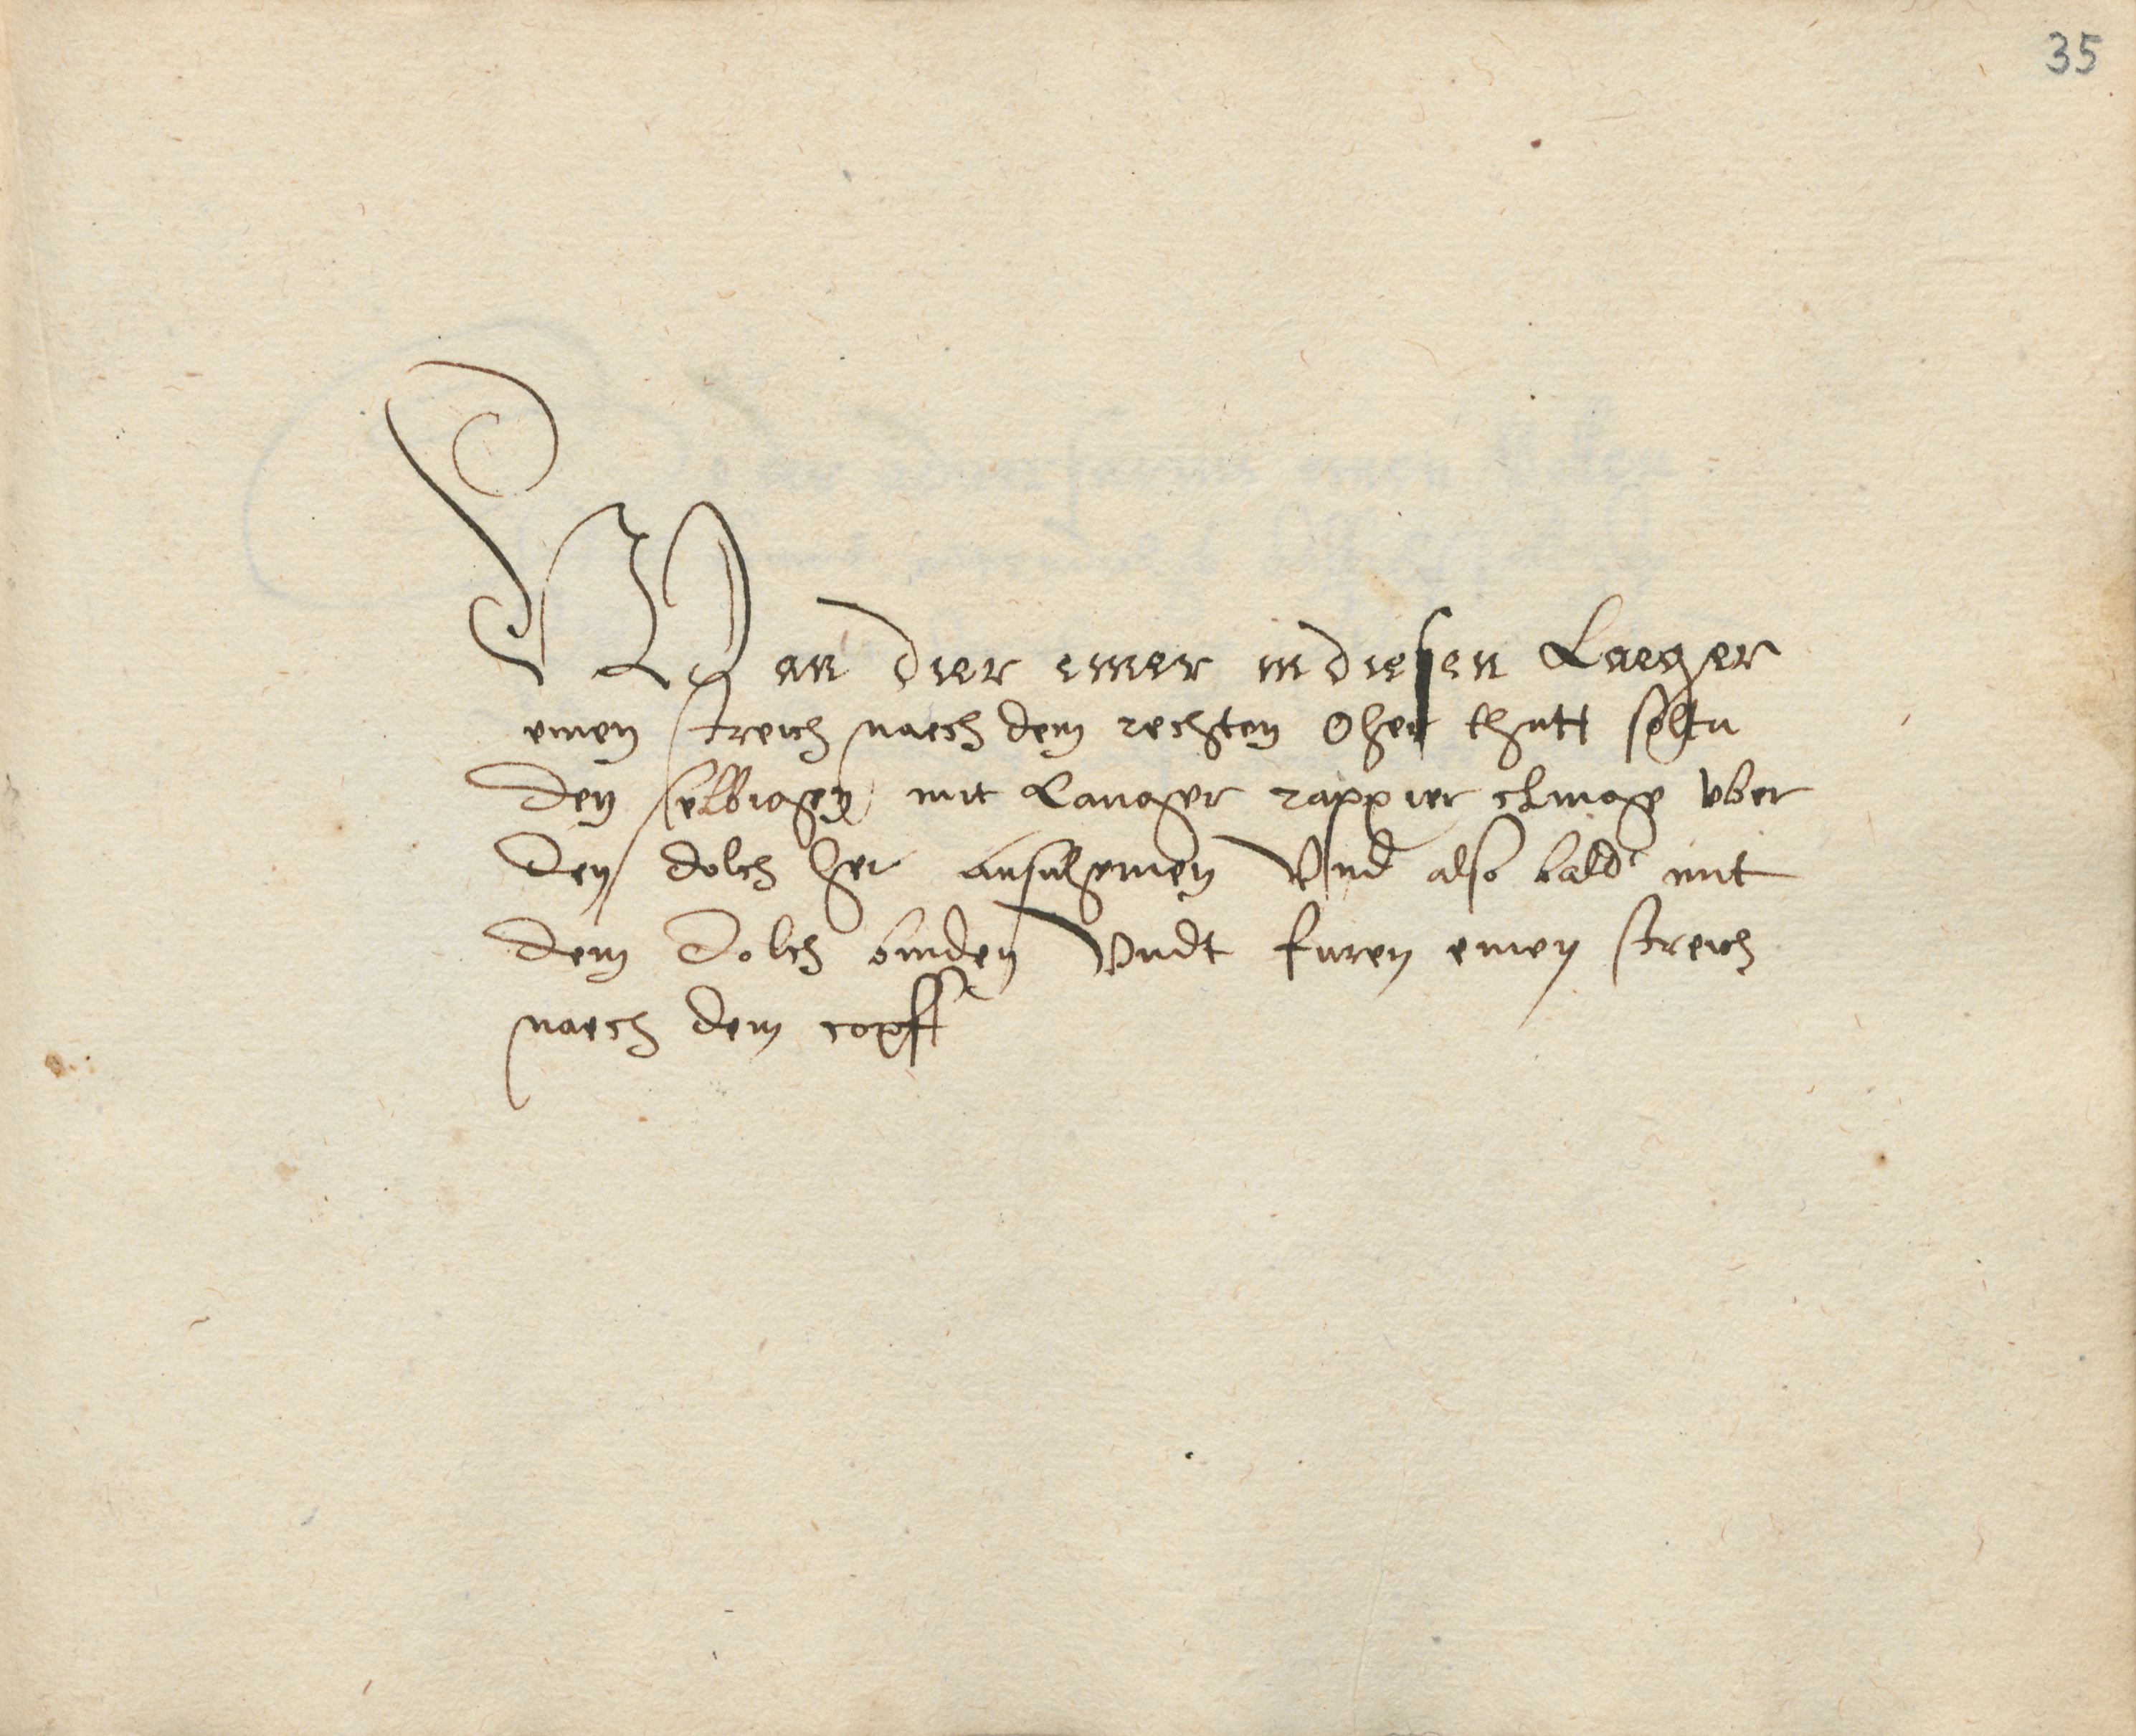 35
Wan dier einer in diesen Laeger
einen streich naech dem rechten Oher thutt soltu
den selbiegen mit Langer rappier clinge vber
den dolch her ausnhemen Vnd also bald mit
dem Dolch binden Vndt furen einen streich
naech dem copff